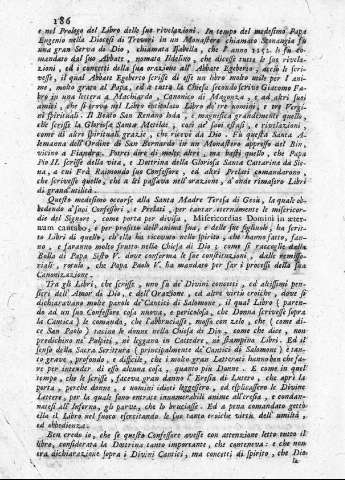 186
e nel Prologo del Libro delle sue rivelazioni. In tempo del medesimo Papa
Eugenio nella Diocesi di Treveri in un Monastero chiamato Sconaugia fu
una gran Serva di Dio, chiamata Isabella, che l'anno 1152. le fu co-
mandato dal suo Abbate, nomato Ildelino, che dicesse tutte le sue rivela-
zioni, ed i concetti della sua orazione all' Abbate Egeberto, acciò le scri-
vesse, il qual Abbate Egeberto scrisse di esse un libro molto utile per l' ani-
me, molto grato al Papa, ed a tutta la Chiesa secondo scrive Giacomo Fa-
bro in una lettera a Machiardo, Canonico di Magonza, e ad altri suoi
amici, che si trova nel Libro intitolato Libro di tre uomini, e tre Vergi-
ni spirituali. Il Beato San Renano loda, e magnifica grandemente quello,
che scrisse la Gloriosa Santa Metilde, così de' suoi estasi, e rivelazioni,
come di altri spirituali grazie, che riceve da Dio. Fu questa Santa A-
lemanna dell'Ordine di San Bernardo in un Monastero appresso del Bin,
vicino a Fiandra. Potrei dire di molte altre, ma basti quello, che Papa
Pio II. scrisse della vita, e Dottrina della Gloriosa Santa Catarina da Sie-
na, a cui Frà Raimondo suo Confessore, ed altri Prelati comandarono,
che scrivesse quello, che a lei passava nell'orazioni, d'onde rimasero Libri
di grand'utilità.
Questo medesimo occorse alla Santa Madre Teresa di Gesù, la quale ob-
bedendo a' suoi Confessori, e Prelati, per cantar eternamente le misericor-
die del Signore, come porta per divisa, Misericordias Domini in æter-
num cantabo, e per profitto dell'anima sua, e delle sue figliuole, ha scrit-
to Libri di quello, ch'ella ha ricevuto nello spirito, che hanno fatto, fan-
no, e faranno molto frutto nella Chiesa di Dio, come si raccoglie dalla
Bolla di Papa Sisto V. dove conferma le sue constituzioni, dalle remisso-
riali, rotulo, che Papa Paolo V. ha mandato per far i processi della sua
Canonizazione.
Tra gli Libri, che scrisse, uno fu de' Divini concetti, ed altissimi pen-
sieri dell' Amor di Dio, e dell'Orazione, ed altre virtù eroiche, dove si
dichiaravano molte parole de' Cantici di Salomone, il qual Libro (paren-
do ad un suo Confessore cosa nuova, e pericolosa, che Donna scrivesse sopra
la Cantica) le comandò, che l'abbruciasse, mosso con zelo, che (come di-
ce San Paolo) tacino le donne nella Chiesa di Dio, come che dice, non
predichino ne' Pulpiti, nè leggano in Cattedre, nè stampino Libri. Ed il
senso della Sacra Scrittura (principalmente de' Cantici di Salomone) è tan-
to grave, profondo, e difficile, che i molto gran Letterati hanno ben che fa-
re per intender di esso alcuna cosa, quanto più Donne. E come in quel
tempo, che le scrisse, faceva gran danno l' Eresia di Lutero, che aprì la
porta, perchè donne, e uomini idioti leggessero, ed esplicassero le Divine
Lettere, per la quale sono entrate innumerabili anime all'eresia, e condan-
natesi all'Inferno, gli parve, che lo bruciasse. Ed a pena comandato gettò-
ella il Libro nel fuoco esercitando le sue tanto eroiche virtù dell' umiltà,
ed obbedienza.
Ben credo io, che se questo Confessore avesse con attenzione letto tutto il
libro, considerata la Dottrina tanto importante, che conteneva: e che non
era dichiarazione sopra i Divini Cantici, ma concetti di spirito, che Dio
la